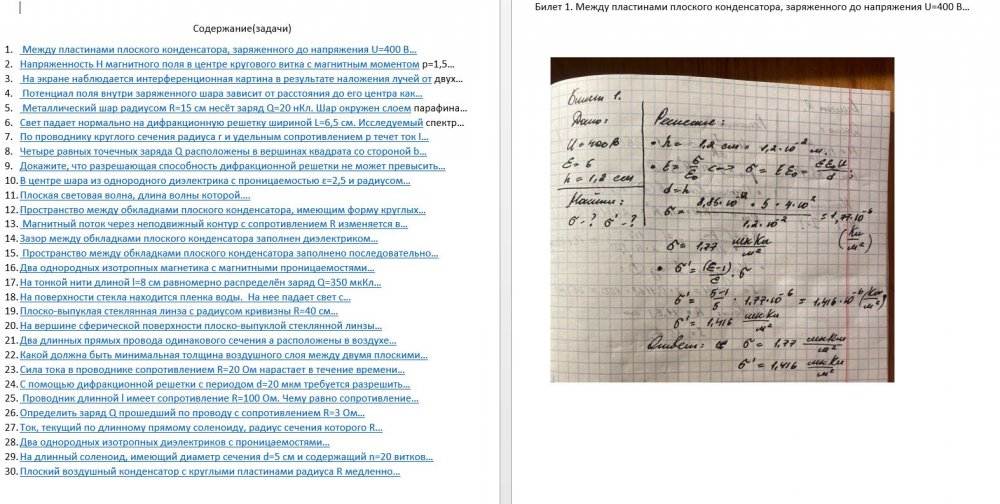 Содержание(задачи)
1. Между пластинами плоского конденсатора, заряженного до напряжения U=400 В…
2. Напряженность Н магнитного поля в центре кругового витка с магнитным моментом р=1,5…
3. На экране наблюдается интерференционная картина в результате наложения лучей от двух…
4. Потенциал поля внутри заряженного шара зависит от расстояния до его центра как…
5. Металлический шар радиусом R=15 см несёт заряд Q=20 нКл. Шар окружен слоем парафина…
6. Свет падает нормально на дифракционную решетку шириной L=6,5 см. Исследуемый спектр…
7. По проводнику круглого сечения радиуса r и удельным сопротивлением р течет ток I…
8. Четыре равных точечных заряда Q расположены в вершинах квадрата со стороной b…
9. Докажите, что разрешающая способность дифракционной решетки не может превысить…
10. В центре шара из однородного диэлектрика с проницаемостью ε=2,5 и радиусом…
11. Плоская световая волна, длина волны которой….
12. Пространство между обкладками плоского конденсатора, имеющим форму круглых…
13. Магнитный поток через неподвижный контур с сопротивлением R изменяется в…
14. Зазор между обкладками плоского конденсатора заполнен диэлектриком…
15. Пространство между обкладками плоского конденсатора заполнено последовательно…
16. Два однородных изотропных магнетика с магнитными проницаемостями…
17. На тонкой нити длиной l=8 см равномерно распределён заряд Q=350 мкКл…
18. На поверхности стекла находится пленка воды. На нее падает свет с…
19. Плоско-выпуклая стеклянная линза с радиусом кривизны R=40 см…
20. На вершине сферической поверхности плоско-выпуклой стеклянной линзы…
21. Два длинных прямых провода одинакового сечения а расположены в воздухе…
22. Какой должна быть минимальная толщина воздушного слоя между двумя плоскими…
23. Сила тока в проводнике сопротивлением R=20 Ом нарастает в течение времени…
24. С помощью дифракционной решетки с периодом d=20 мкм требуется разрешить…
25. Проводник длинной l имеет сопротивление R=100 Ом. Чему равно сопротивление…
26. Определить заряд Q прошедший по проводу с сопротивлением R=3 Ом…
27. Ток, текущий по длинному прямому соленоиду, радиус сечения которого R…
28. Два однородных изотропных диэлектриков с проницаемостями…
29. На длинный соленоид, имеющий диаметр сечения d=5 см и содержащий n=20 витков…
30. Плоский воздушный конденсатор с круглыми пластинами радиуса R медленно…
Билет 1. Между пластинами плоского конденсатора, заряженного до напряжения U=400 В…
Билет 1.
Дано:
U = 400 В
h = 1,2 см
Найти:
σ - ? σ' - ?
Решение:
h = 1,2 см = 1,2·10⁻² м
σ = 1,77 мкКл/м²
σ' = (ε-1)/ε · σ
σ' = (5-1)/5 · 1,77·10⁻⁶ = 1,416·10⁻⁶ (Кл/м²)
σ' = 1,416 мкКл/м²
Ответ: σ = 1,77 мкКл/м²
σ' = 1,416 мкКл/м²